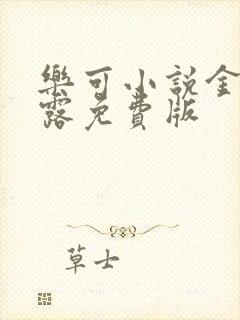 樂可小說金
露免費版
草士